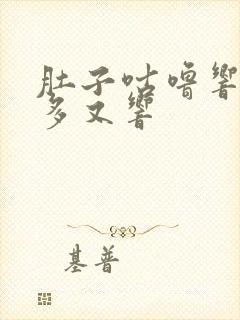 肚子咕嚕響
多又響
基普